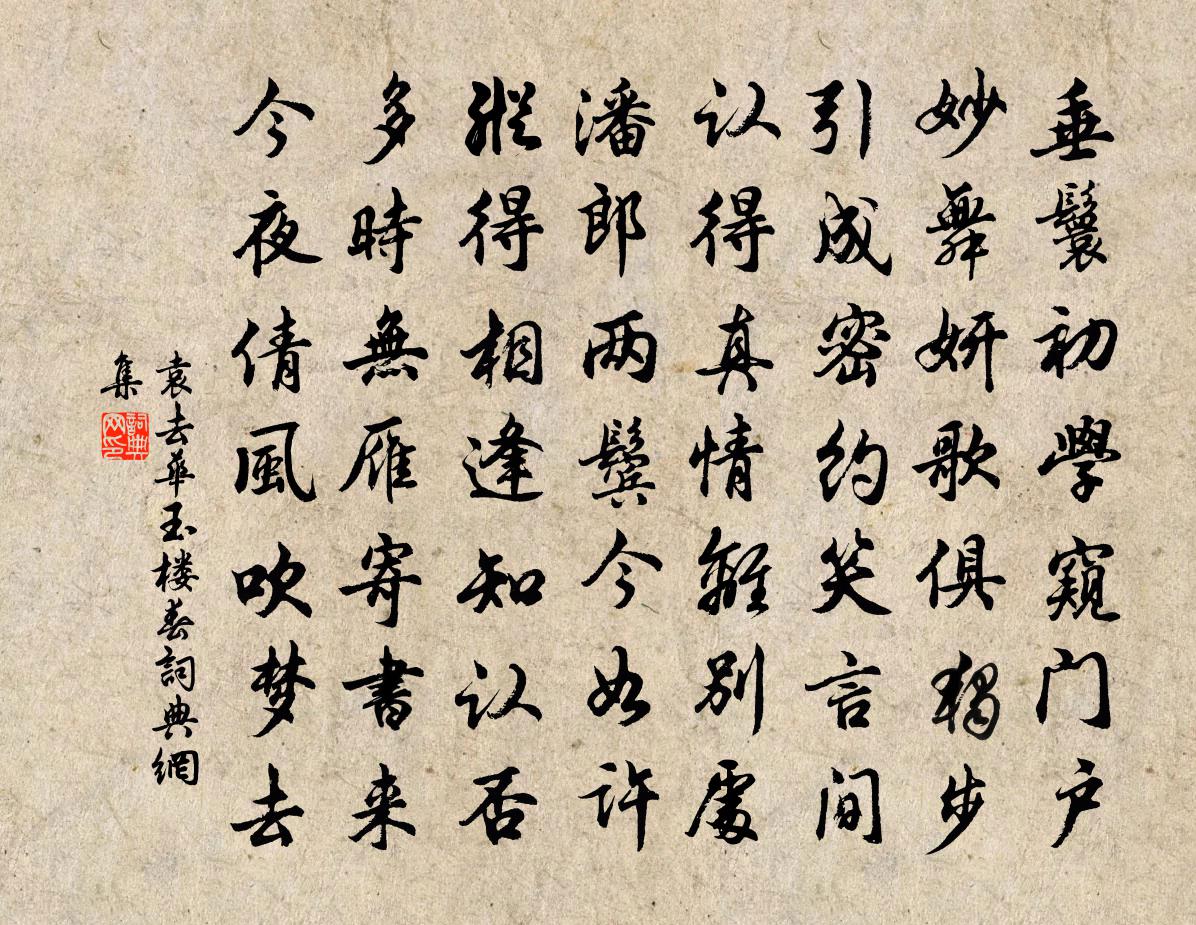 垂鬟初學窺门户
妙舞妍歌俱獨步
引成密約笑言间
认得真情離別處
潘郎两鬓今如许
縱得相逢知认否
多時無雁寄書来
今夜倩風吹梦去
袁去華玉楼春詞典網
集
詞典网印